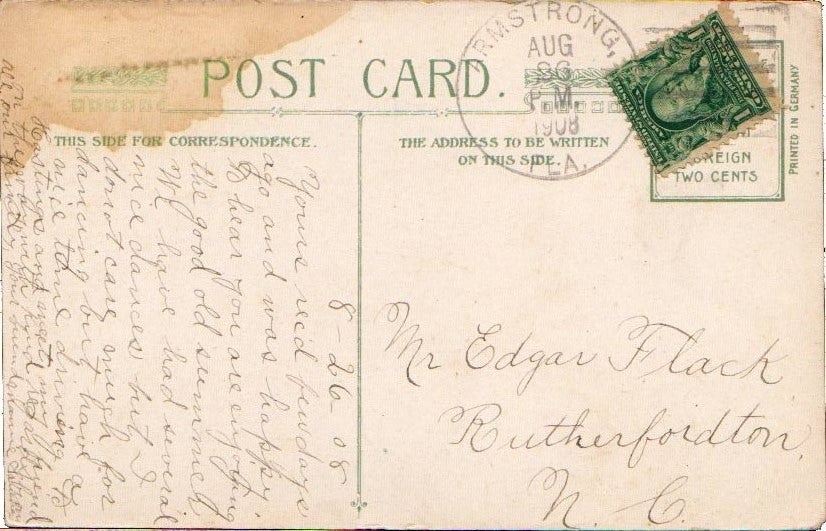 POST CARD.
THIS SIDE FOR CORRESPONDENCE.
THE ADDRESS TO BE WRITTEN
ON THIS SIDE.
RMSTRONG,
AUG
26
P M
1908
FLA.
FOREIGN
TWO CENTS
PRINTED IN GERMANY
8-26-08
Yours rec'd few days
ago and was happy
to hear you are enjoying
the good old summer
We have had several
nice dances but I
do not care much for
dancing but have a
nice time driving
Hastings and
Mr Edgar Flack
Rutherfordton,
N C.